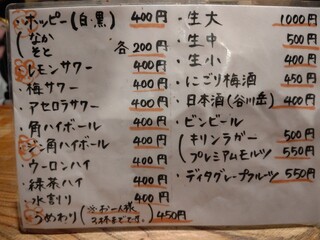 ・ホッピー(白・黒) 400円
(なか
そと 各200円
・レモンサワー 400円
・梅サワー 400円
・アセロラサワー 400円
・角ハイボール 400円
・ジン角ハイボール 400円
・ウーロンハイ 400円
・緑茶ハイ 400円
・水割り 400円
・うめわり(※お一人様 3杯まで) 450円
・生大 1000円
・生中 500円
・生小 400円
・にごり梅酒 450円
・日本酒(谷川岳) 400円
・ビンビール
(キリンラガー 500円
プレミアムモルツ 550円
・ディタグレープフルーツ 550円